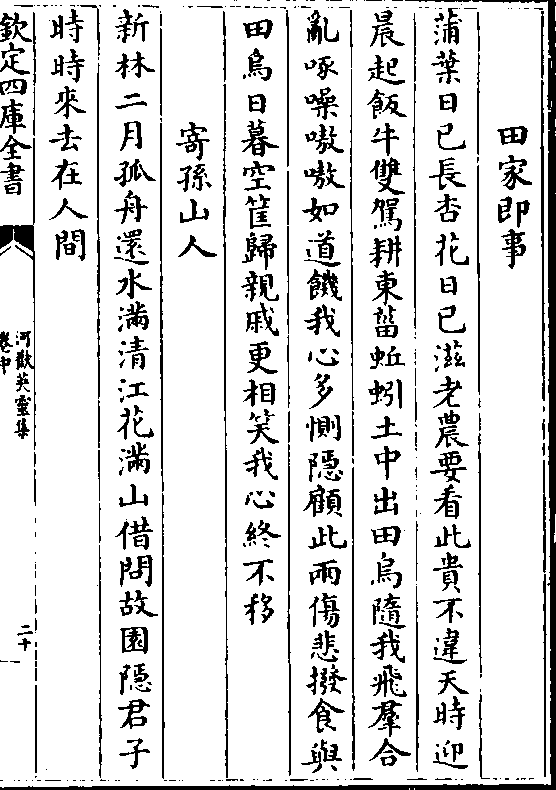 田家即事
蒲葉日已長杏花日已滋老農要看此貴不違天時迎
晨起飯牛雙駕耕東菑蚯蚓土中出田烏隨我飛羣合
亂啄噪嗷嗷如道饑我心多惻隱顧此兩傷悲撥食與
田烏日暮空筐歸親戚更相笑我心終不移
寄孫山人
新林二月孤舟還水滿清江花滿山借問故園隱君子
時時來去在人間
欽定四庫全書
河嶽英靈集
卷中
二十